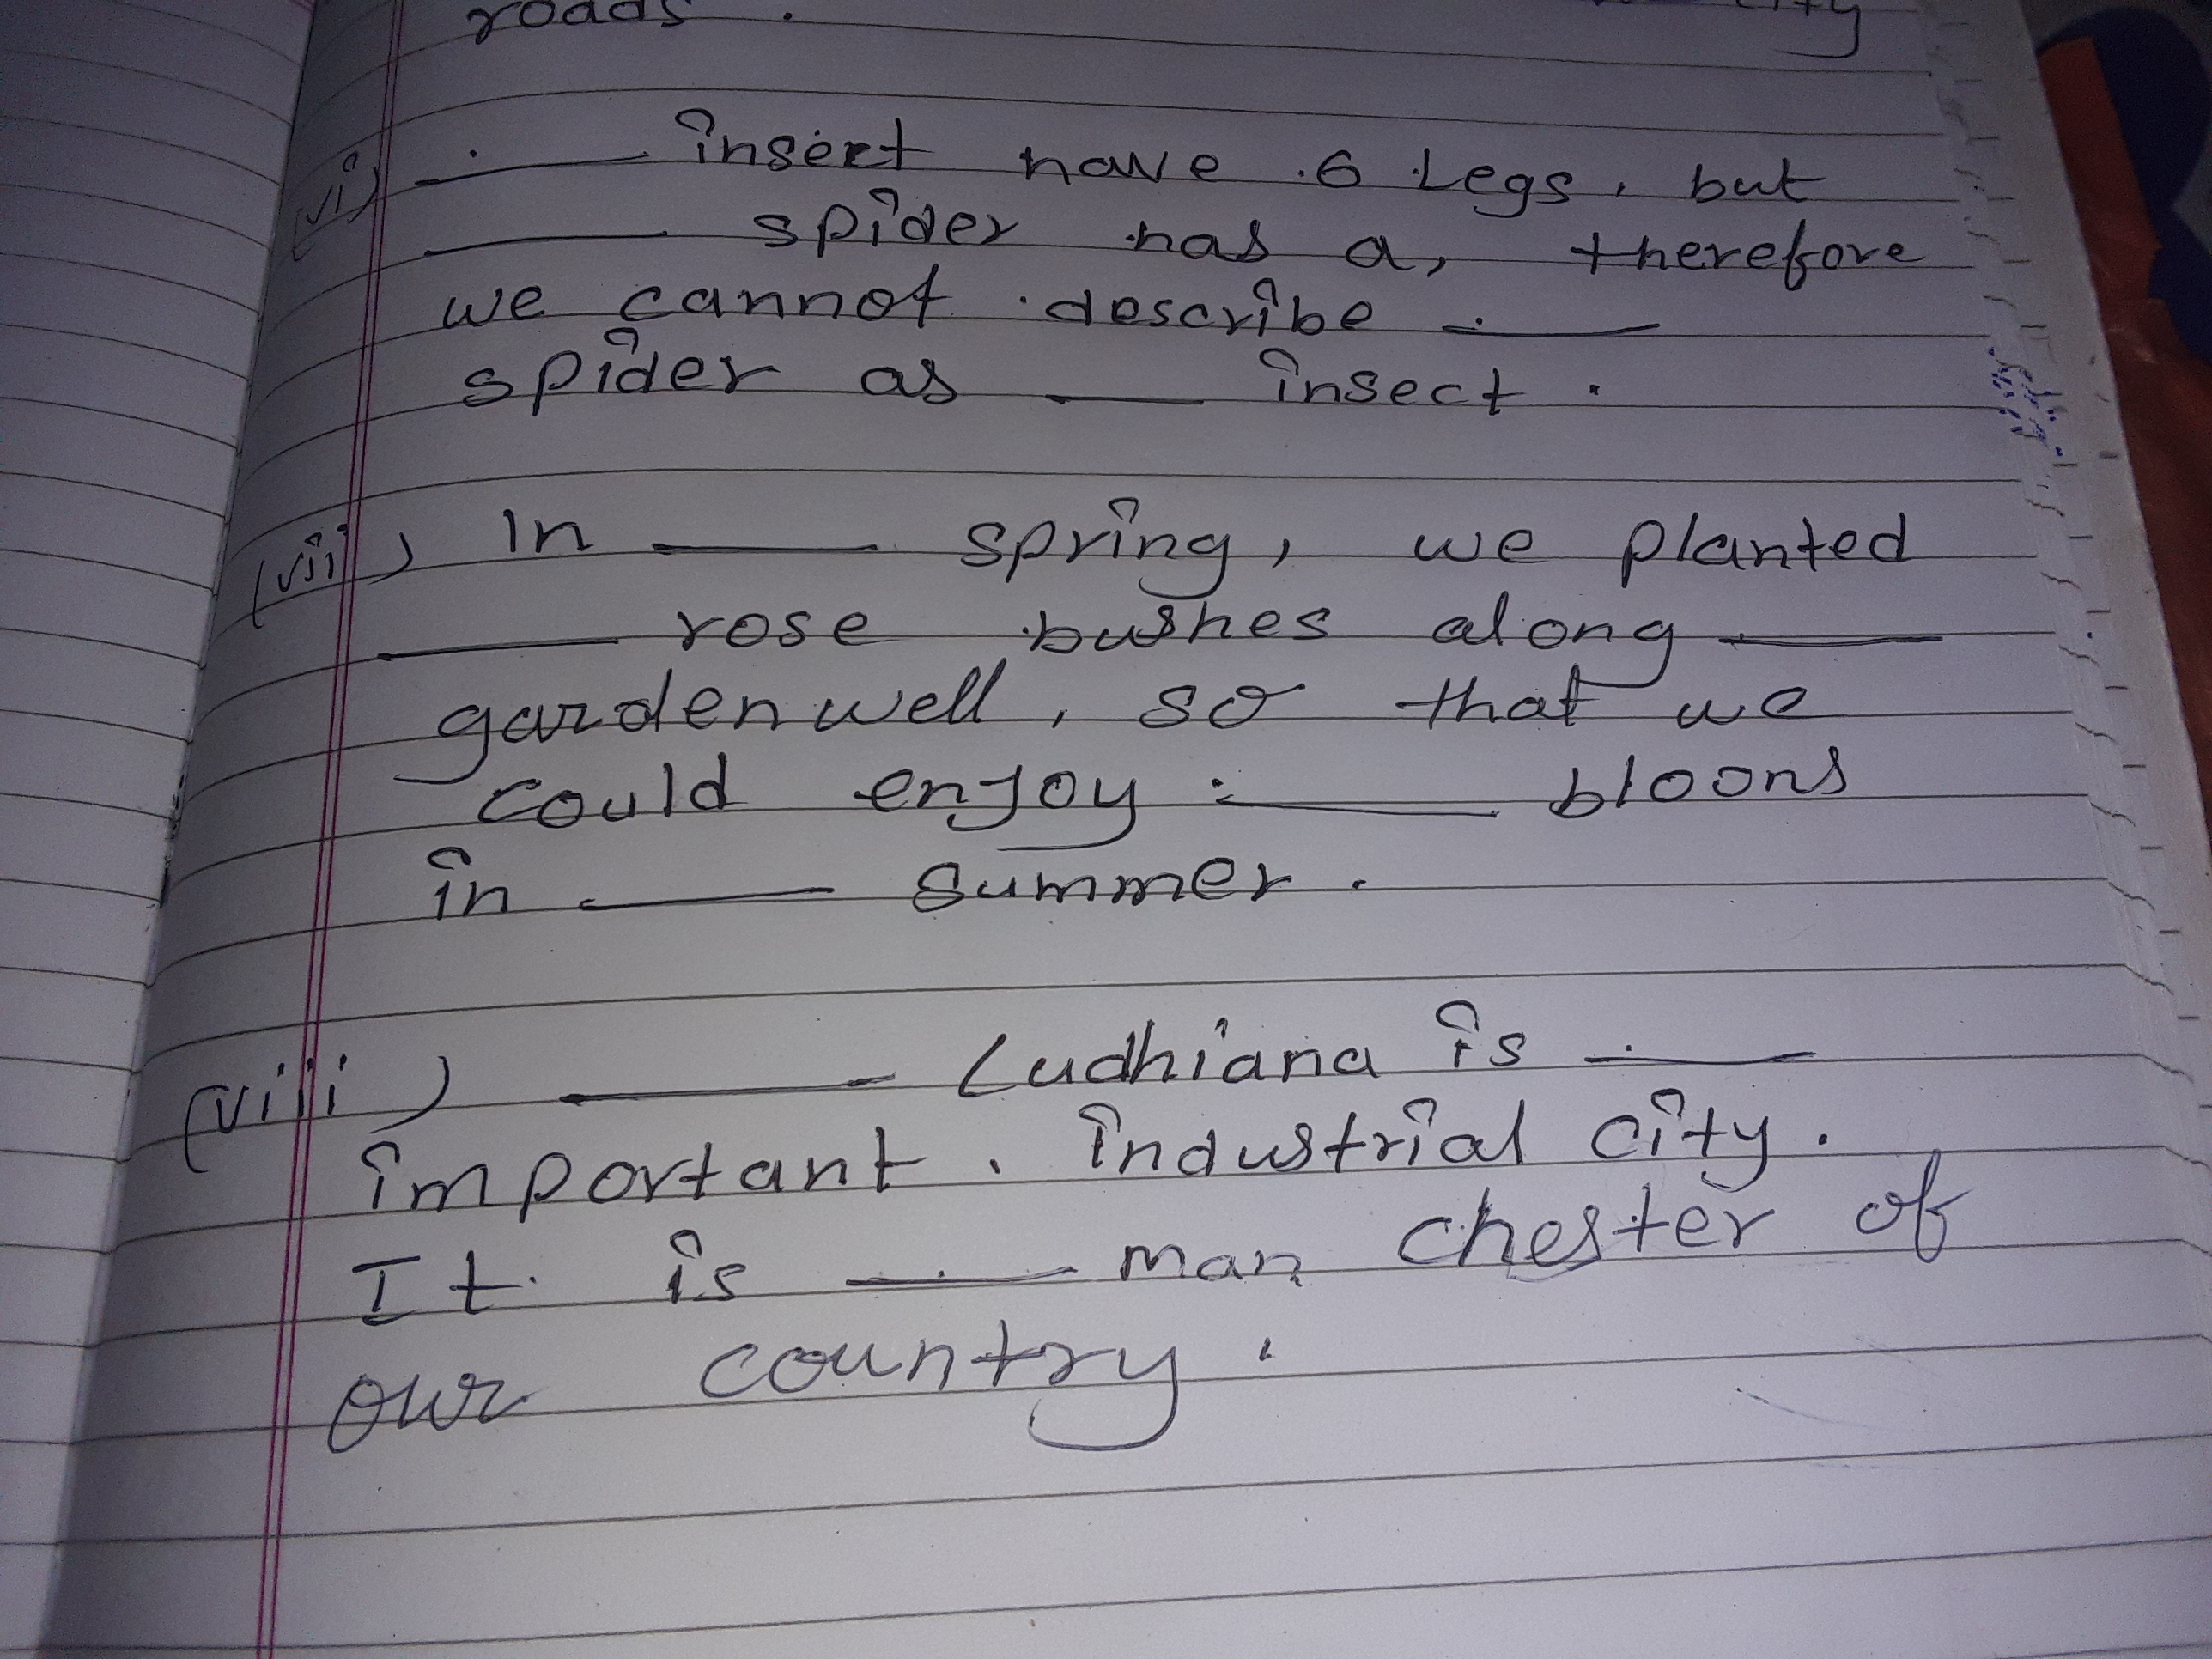 roads . city
(vi) . ____ insert have .6 Legs, but
____ spider has a, therefore
we cannot describe ____
spider as ____ insect .
(vii) In ____ spring, we planted
____ rose bushes along ____
garden well, so that we
could enjoy ____ bloons
in ____ summer .
(viii) ____ Ludhiana is ____
important . industrial city .
It is ____ man chester of
our country .